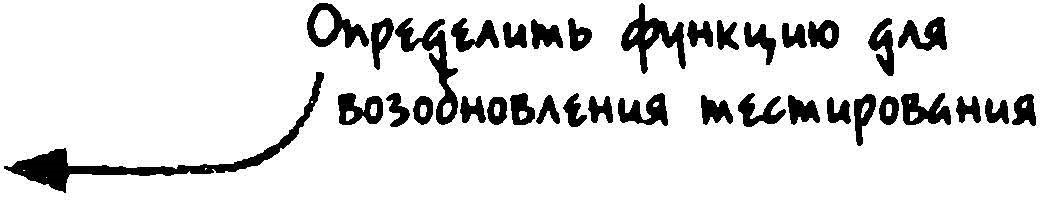 Определить функцию для
возобновления тестирования